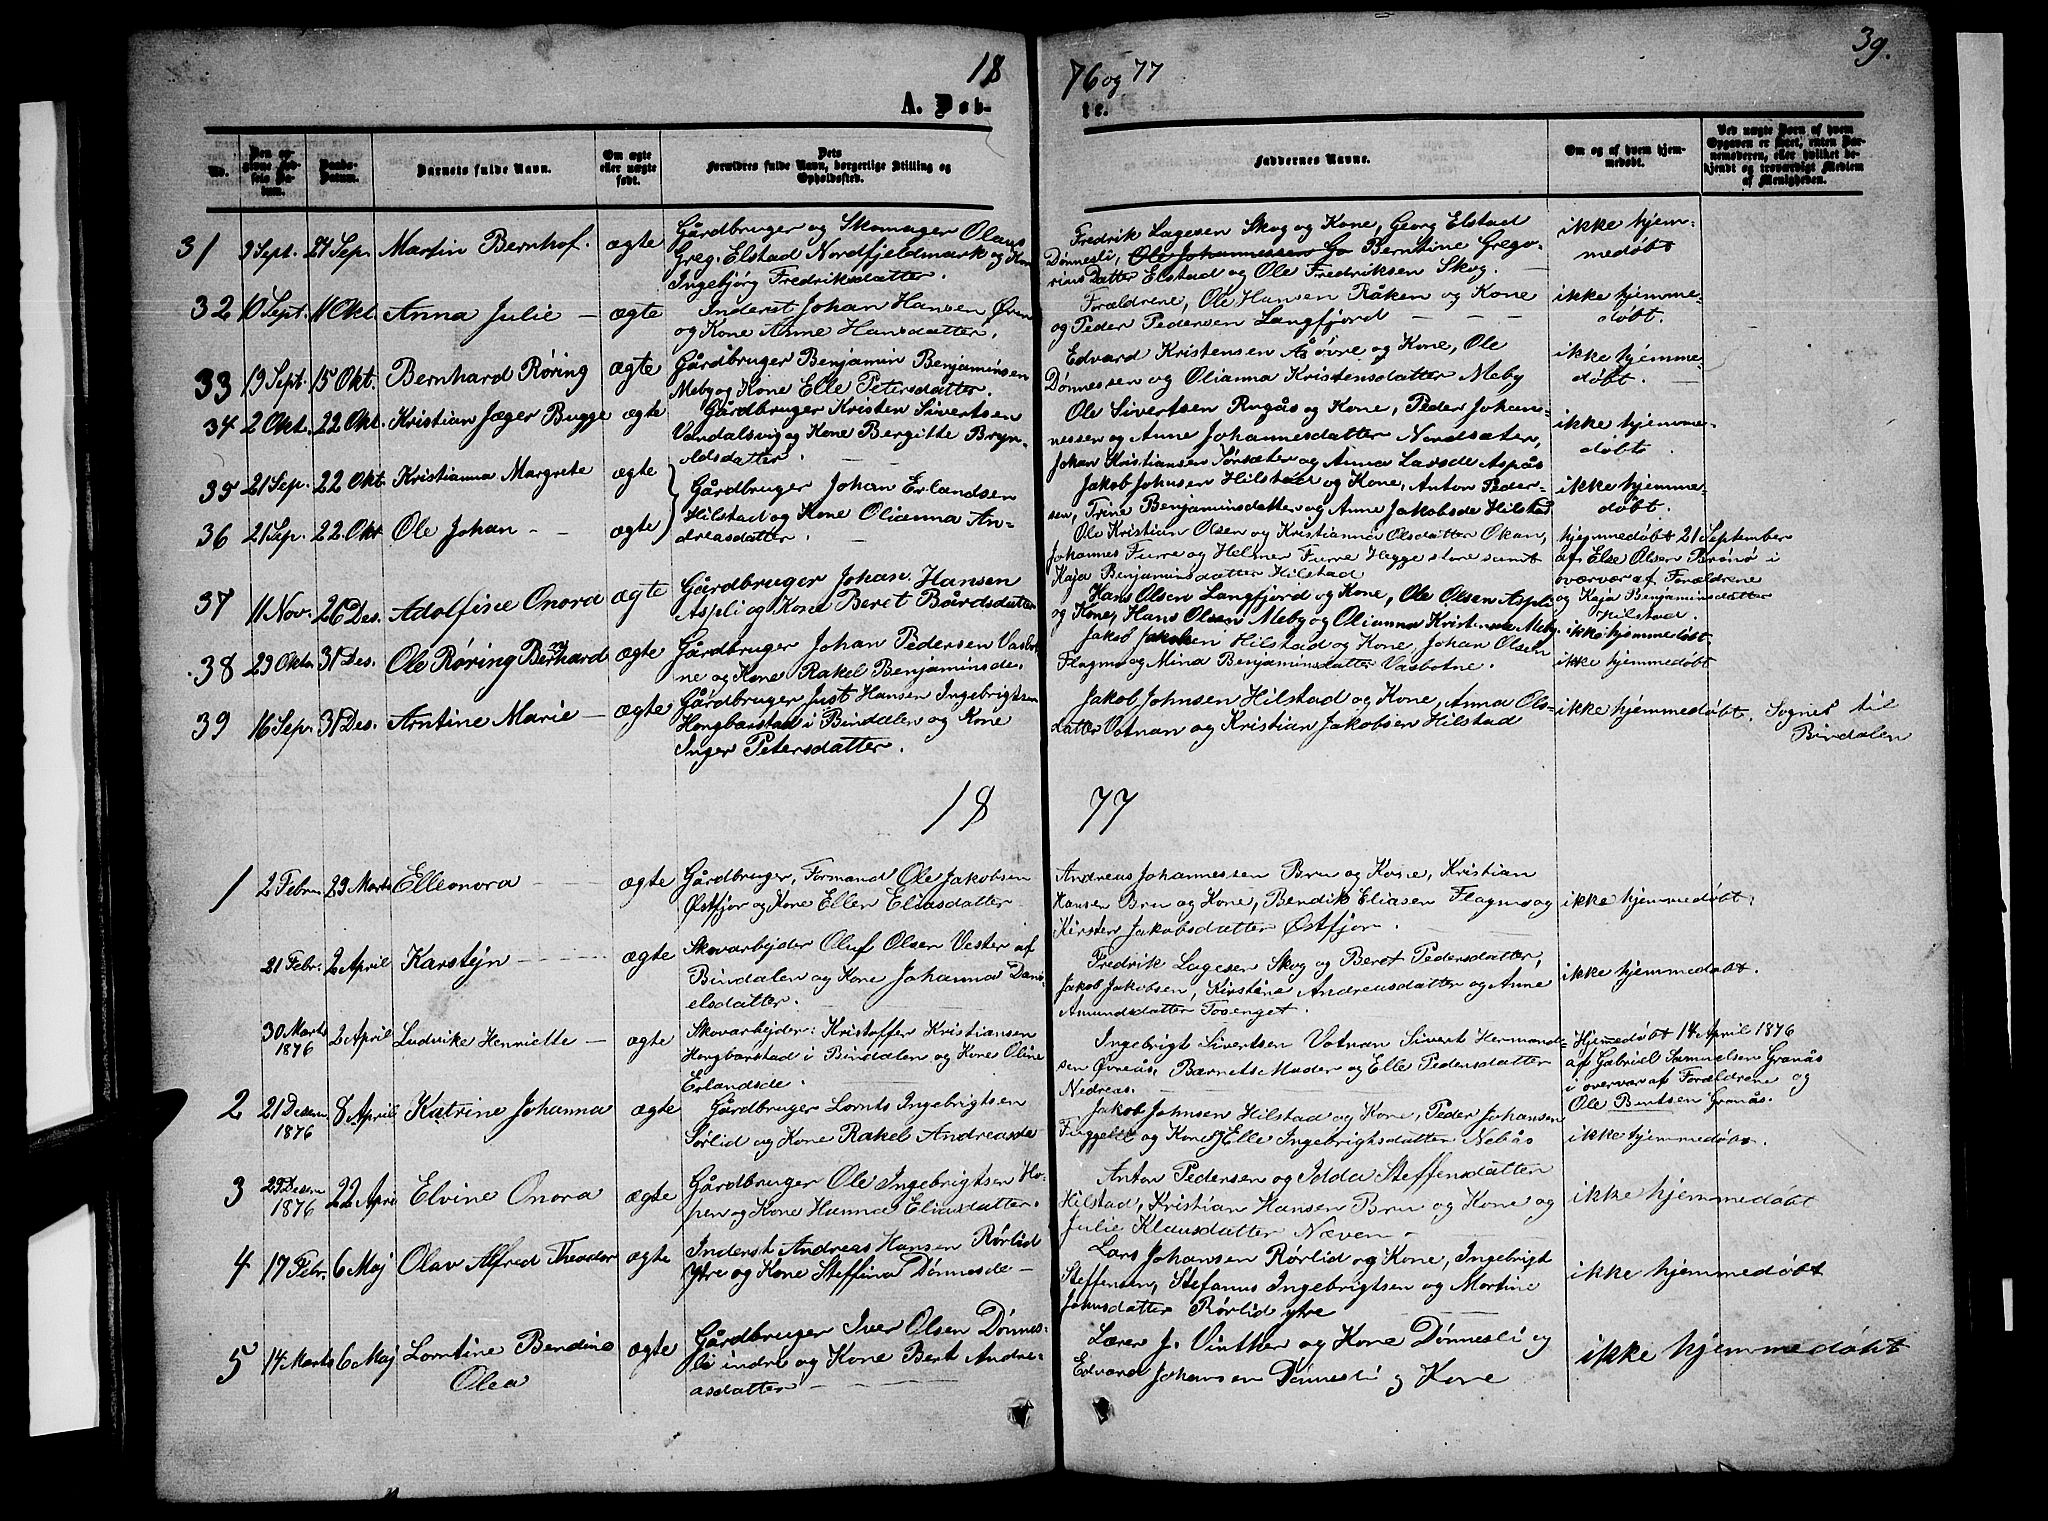 18 76 og 77
39.
A. Døb- te.
No.
Den opgivne Fødsels Datum.
Daabs-Datum.
Barnets fulde Navn.
Om ægte eller uægte født.
Dets Forældres fulde Navn, borgerlige Stilling og Opholdssted.
Faddernes Navne.
Om og af hvem hjemmedøbt.
Ved uægte Børn af hvem Opgaven er skeet, enten Barnemoderen, eller hvilket bekjendt og troværdigt Medlem af Menigheden.
31 9 Sept. 24 Sep. Martin Bernhof. ægte
Gårdbruger og Skomager Olaus
Greg. Elstad Nordfjeldmark og Kone
Ingebjørg Fredriksdatter.
Fredrik Lagesen Skog og Kone, Georg Elstad
Dønnesli, Ole Johannessen Go Berntine Grego-
rius Datter Elstad og Ole Fredriksen Skog. -
ikke hjem-
medøbt
32 10 Sept. 11 Okt. Anna Julie - ægte
Inderst Johan Hansen Øren
og Kone Anne Hansdatter.
Forældrene, Ole Hansen Råken og Kone
og Peder Pedersen Langfjord - - -
ikke hjemme-
døbt.
33 19 Sept. 15 Okt. Bernhard Røring ægte
Gårdbruger Benjamin Benjaminsen
Meby og Kone Elle Petersdatter.
Edvard Kristensen Åøvre og Kone, Ole
Dønnessen og Olianna Kristensdatter Meby
ikke hjemme-
døbt. -
34 2 Okt. 22 Okt. Kristian Jæger Bugge ægte
Gårdbruger Kristen Sivertsen
Vandalsvig og Kone Bergitte Bryn-
oldsdatter. -
Ole Sivertsen Rugås og Kone, Peder Johan-
nessen og Anne Johannesdatter Nordsæter,
Johan Kristiansen Sørsæter og Anna Larsde Aspås
ikke hjemme-
døbt.
35 21 Sep. 22 Okt. Kristianna Margrete ægte
36 21 Sep. 22 Okt Ole Johan - - ægte
Gårdbruger Johan Erlandsen
Hilstad og Kone Olianna An-
dreasdatter. -
Jakob Johnsen Hilstad og Kone, Anton Peder-
sen, Trine Benjaminsdatter og Anne Jakobsde Hilstad
ikke hjemme-
døbt.
Ole Kristian Olsen og Kristianna Olsdatter Okan,
Johannes Furre og Helmer Furre Hegge store samt
Kaja Benjaminsdatter Hilstad
hjemmedøbt 21 September
af Else Olsen Brønø i
overvær af Forældrene
og Kaja Benjaminsdatter
Hilstad.
37 11 Nov. 26 Des. Adolfine Onora ægte
Gårdbruger Johan Hansen
Aspli og Kone Beret Bårdsdatter
Hans Olsen Langfjord og Kone, Ole Olsen Aspli
og Kone, Hans Olsen Meby og Olianna Kristensde Meby.
ikke hjemmedøbt
38 29 Okt. 31 Des. Ole Røring Bernhard ægte
Gårdbruger Johan Pedersen Vasbot-
ne og Kone Rakel Benjaminsde.
Jakob Jakobsen Hilstad og Kone, Johan Olsen
Flagmo og Mina Benjaminsdatter Vasbotne.
ikke hjemmedøbt
39 16 Sep. 31 Des. Arntine Marie - ægte
Gårdbruger Just Hansen Ingebrigtsen
Hongbarstad i Bindalen og Kone
Inger Petersdatter.
Jakob Johnsen Hilstad og Kone, Anna Ols-
datter Votnan og Kristian Jakobsen Hilstad
ikke hjemmedøbt. Sognet til
Bindalen
18 77
1 2 Febr. 29 Marts Elleonora - ægte
Gårdbruger, Formand Ole Jakobsen
Østfjor og Kone Ellen Eliasdatter
Andreas Johannessen Bru og Kone, Kristian
Hansen Bru og Kone, Bendik Eliasen Flagmo og
Kirsten Jakobsdatter Østfjor.
ikke hjemmedøbt.
21 Febr. 2 April Karstejn - ægte
Skovarbejder Oluf Olsen Vester af
Bindalen og Kone Johanna Dani-
elsdatter.
Fredrik Lagesen Skog og Beret Pedersdatter,
Jakob Jakobsen, Kirstine Andreasdatter og Anne
Amundsdatter Tosenget.
ikke hjemmedøbt.
30 Marts 1876 2 April Ludvike Henriette - ægte
Skovarbejder: Kristoffer Kristiansen
Hongbarstad i Bindalen og Kone Oline
Erlandsde.
Ingebrigt Sivertsen Votnan Sivert Hermand-
sen Øvreås, Barnets Moder og Elle Pedersdatter
Nedreås.
Hjemedøbt 14 April 1876
af Gabriel Samuelsen Granås
i overvær af Forældrene og
Ole Bentsen Granås.
2 21 Desem 1876 8 April Katrine Johanna ægte
Gårdbruger Lornts Ingebrigtsen
Sørlid og Kone Rakel Andreasde
Jakob Johnsen Hilstad og Kone, Peder Johansen
og Kone, Elle Ingebrigtsdatter Nebås
ikke hjemmedøbt.
3 29 Desem 1876 22 Apri Elvine Onora ægte
Gårdbruger Ole Ingebrigtsen Ho-
pen og Kone Hanna Eliasdatter.
Anton Pedersen og Idda Steffensdatter
Hilstad, Kristian Hansen Bru og Kone og
Julie Klausdatter Næven -
ikke hjemmedøbt
4 17 Febr. 6 Maj Olav Alfred Theodor ægte
Inderst Andreas Hansen Rørlid
Ytre og Kone Steffina Dønnesde -
Lars Johansen Rørlid og Kone, Ingebrigt
Steffensen, Stefanus Ingebrigtsen og Martine
Jonusdatter Rørlid ytre
ikke hjemmedøbt
5 14 Marts 6 Maj Lorntine Bendine
Olea
ægte
Gårdbruger Iver Olsen Dønnes-
li indre og Kone Bert Andre-
asdatter - - -
Lærer J. Vinther og Kone Dønnesli og
Edvard Johansen Dønnesli og Kone
ikke hjemmedøbt